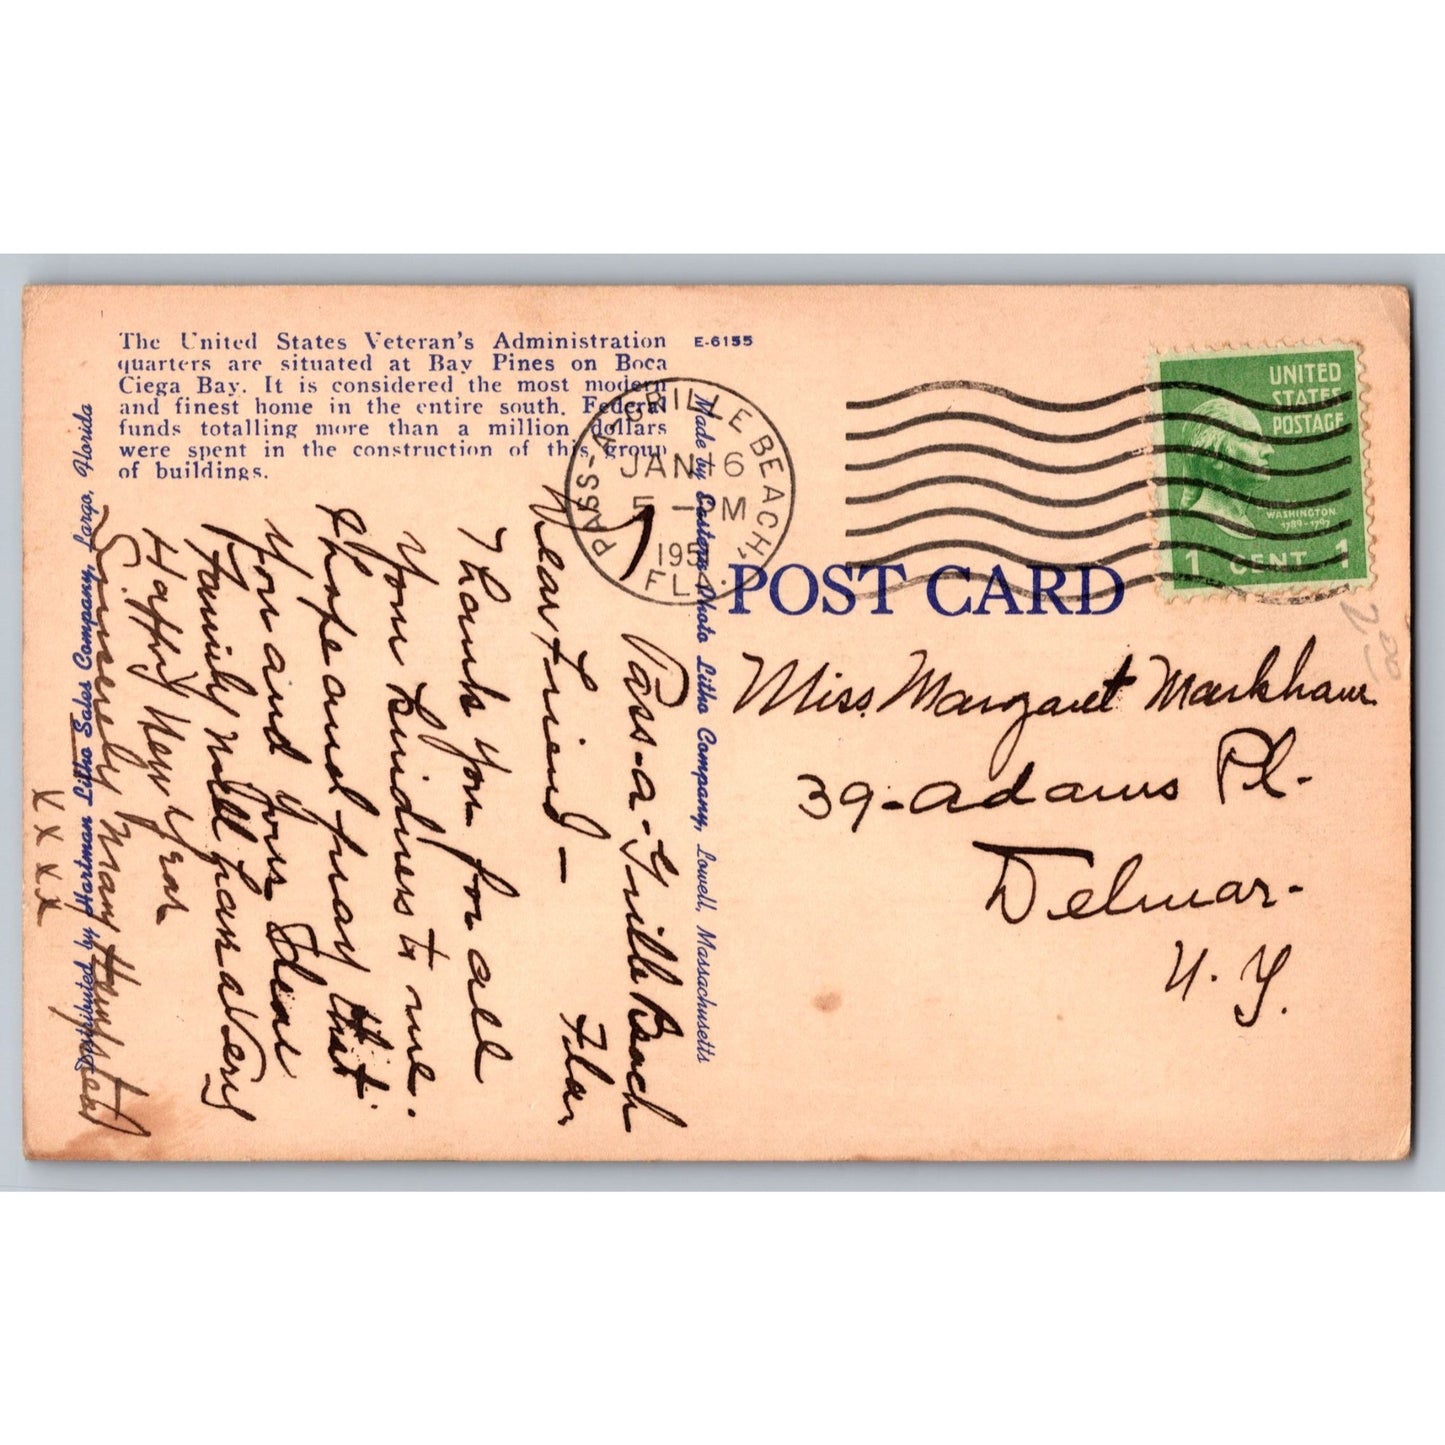 The United States Veteran's Administration
quarters are situated at Bay Pines on Boca
Ciega Bay. It is considered the most modern
and finest home in the entire south. Federal
funds totalling more than a million dollars
were spent in the construction of this group
of buildings.
E-6155
PASS-A-GRILLE BEACH,
JAN 6
5 - PM
195
FLA.
UNITED
STATES
POSTAGE
WASHINGTON
1789-1797
1 CENT 1
POST CARD
Made by Eastern Photo Litho Company, Lowell, Massachusetts
Distributed by Hartman Litho Sales Company, Largo, Florida
Pass-a-Grille Beach
Fla.
Dear Friend -
Thank you for all
your kindness to me.
I hope and pray that
you and your dear
family will have a very
Happy New Year
Sincerely Mary Hempstead
X X X X
Miss. Margaret Markham
39-Adams Pl-
Delmar-
N. Y.
2.00